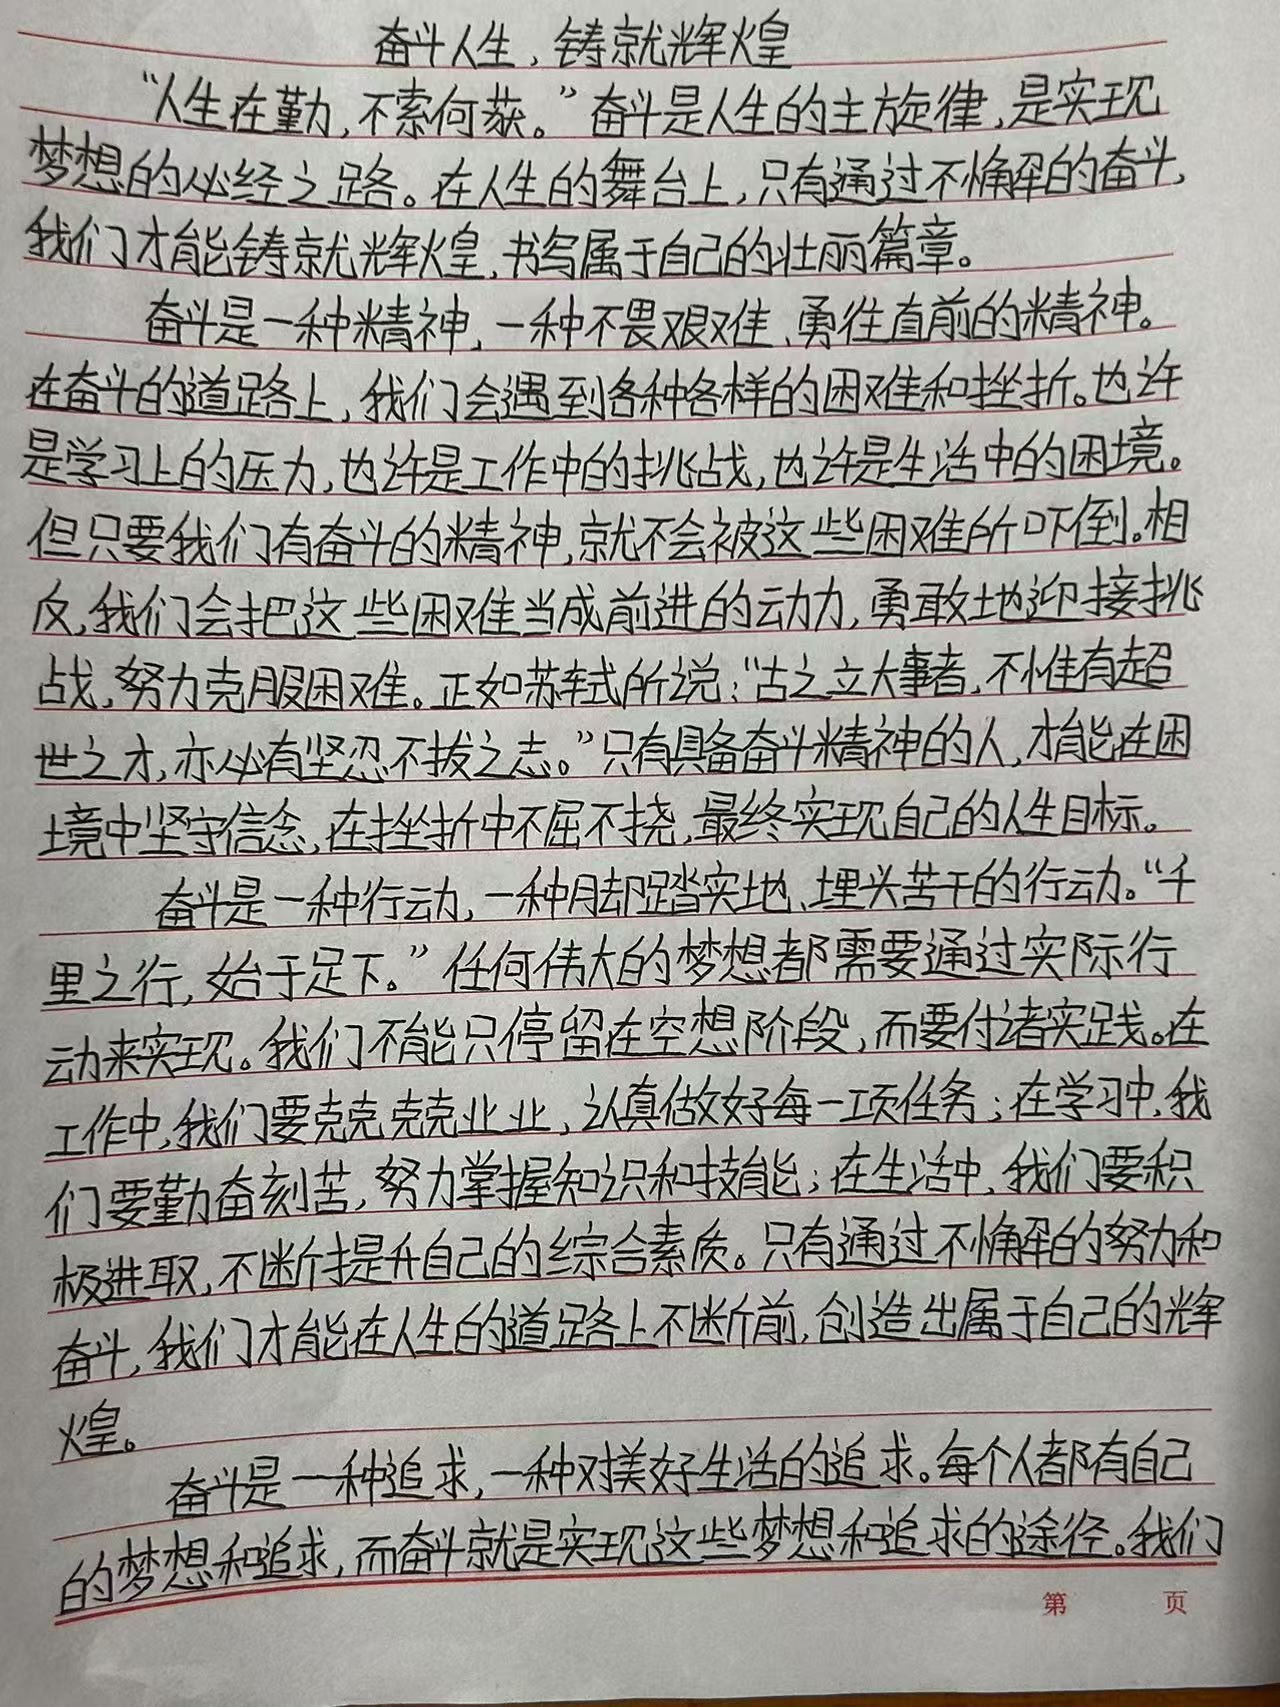 奋斗人生，铸就辉煌
“人生在勤，不索何获。”奋斗是人生的主旋律，是实现
梦想的必经之路。在人生的舞台上，只有通过不懈的奋斗，
我们才能铸就辉煌，书写属于自己的壮丽篇章。
奋斗是一种精神，一种不畏艰难、勇往直前的精神。
在奋斗的道路上，我们会遇到各种各样的困难和挫折。也许
是学习上的压力，也许是工作中的挑战，也许是生活中的困境。
但只要我们有奋斗的精神，就不会被这些困难所吓倒。相
反，我们会把这些困难当成前进的动力，勇敢地迎接挑
战，努力克服困难。正如苏轼所说：“古之立大事者，不惟有超
世之才，亦必有坚忍不拔之志。”只有具备奋斗精神的人，才能在困
境中坚守信念，在挫折中不屈不挠，最终实现自己的人生目标。
奋斗是一种行动，一种脚踏实地、埋头苦干的行动。“千
里之行，始于足下。”任何伟大的梦想都需要通过实际行
动来实现。我们不能只停留在空想阶段，而要付诸实践。在
工作中，我们要兢兢业业，认真做好每一项任务；在学习中，我
们要勤奋刻苦，努力掌握知识和技能；在生活中，我们要积
极进取，不断提升自己的综合素质。只有通过不懈的努力和
奋斗，我们才能在人生的道路上不断前，创造出属于自己的辉
煌。
奋斗是一种追求，一种对美好生活的追求。每个人都有自己
的梦想和追求，而奋斗就是实现这些梦想和追求的途径。我们
第 页